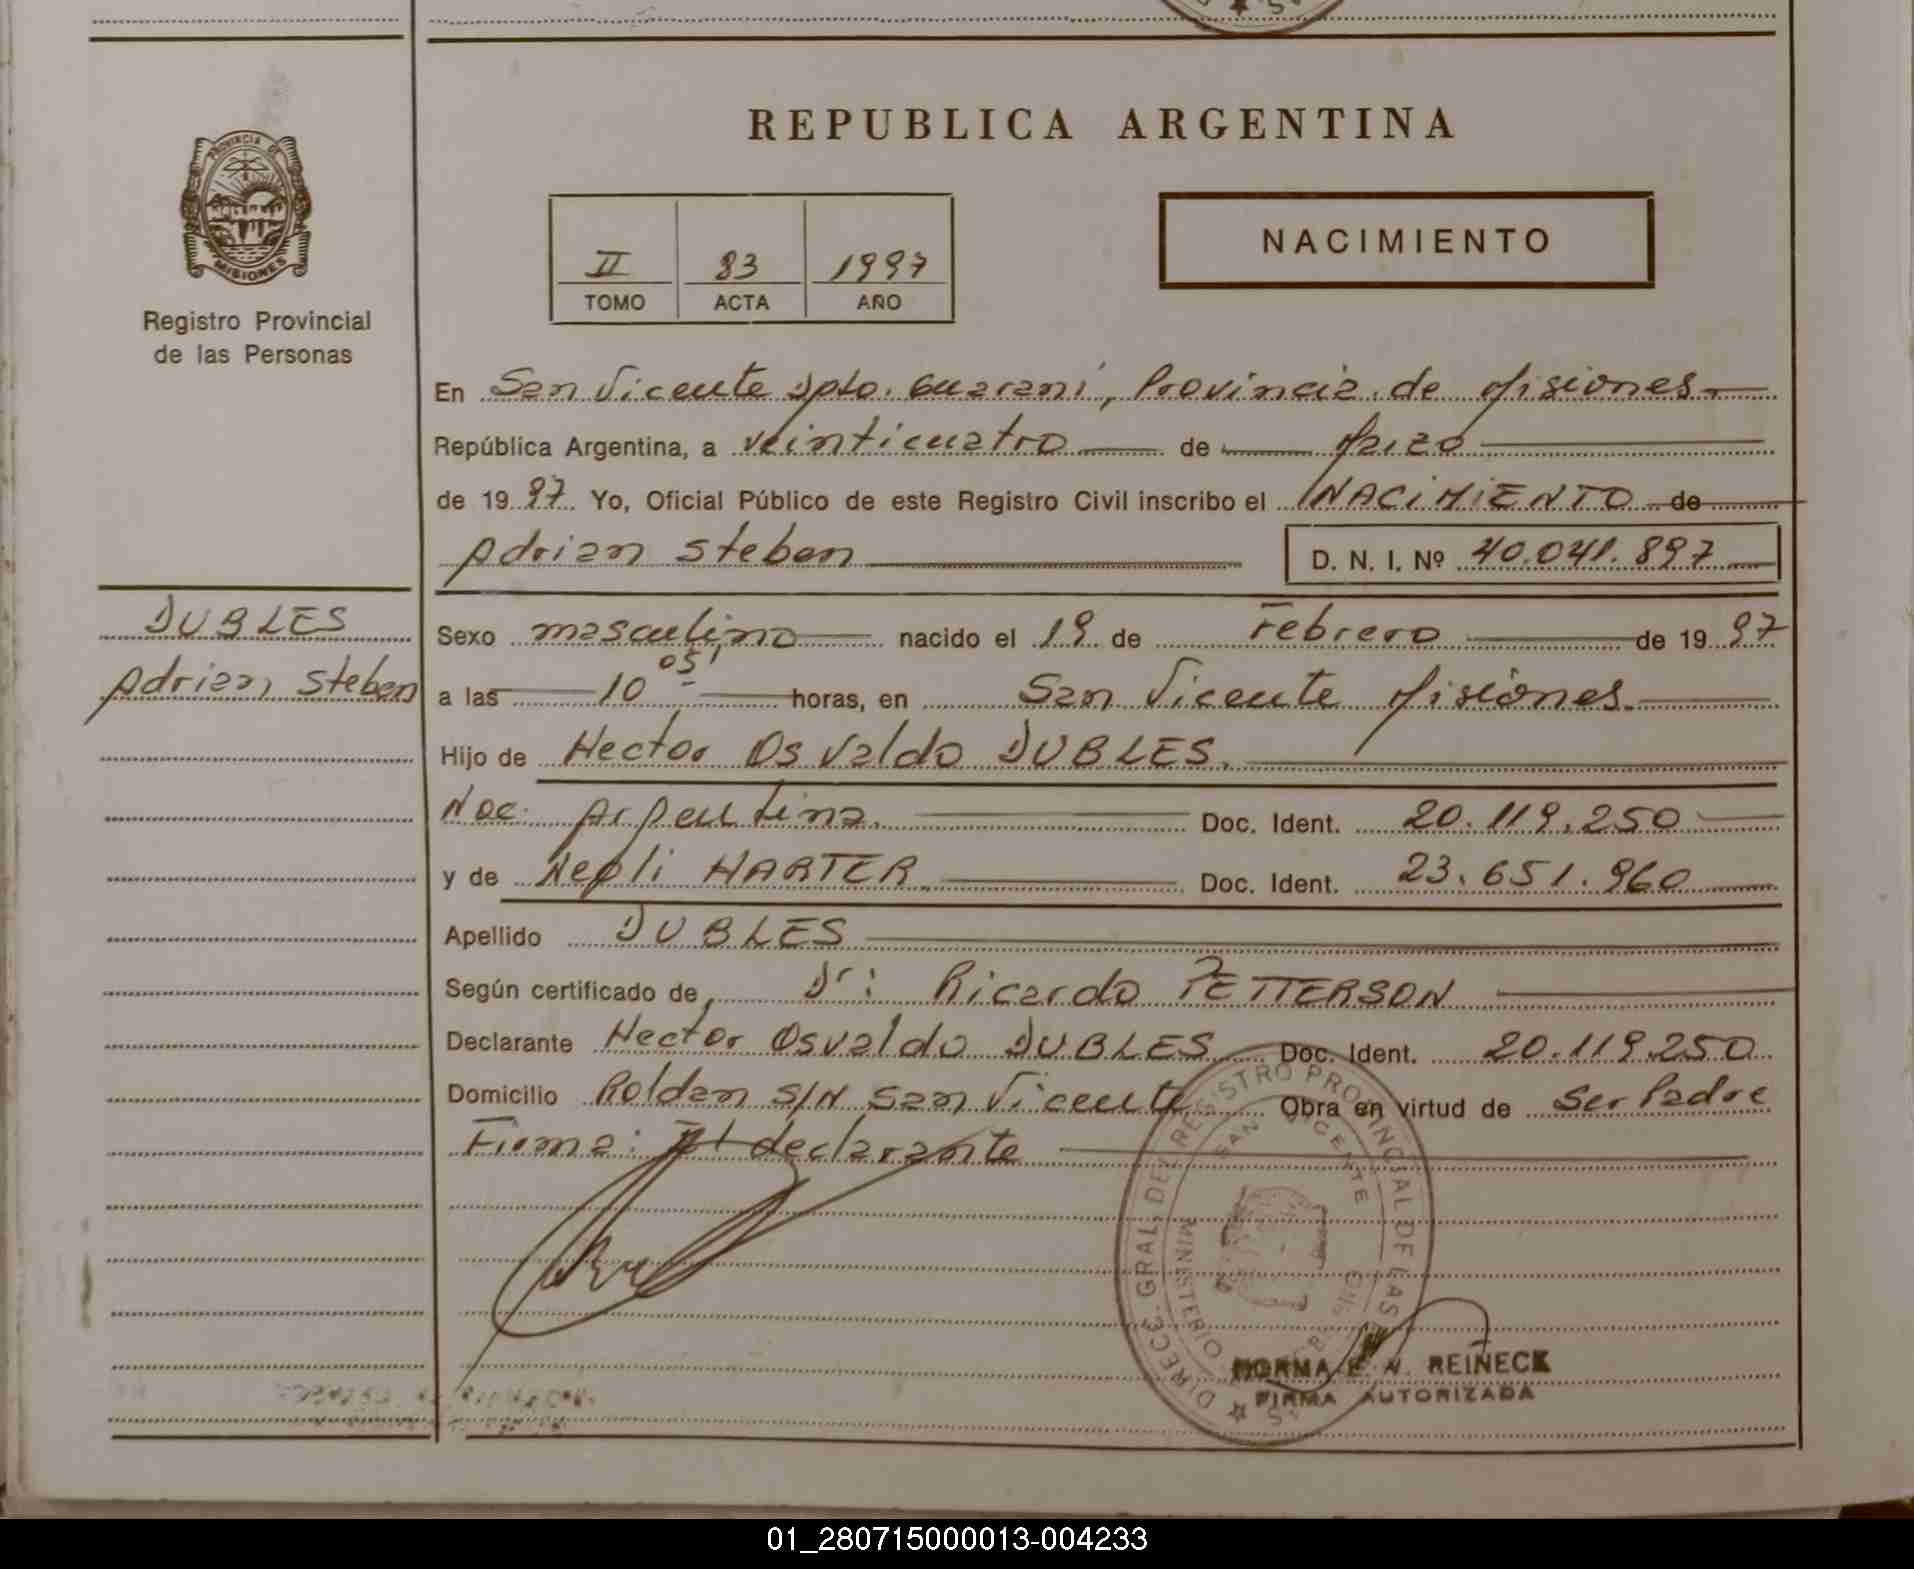 REPUBLICA ARGENTINA
PROVINCIA DE
MISIONES
Registro Provincial
de las Personas
II 83 1997
TOMO ACTA AÑO
NACIMIENTO
En San Vicente Dpto. Guaraní, Provincia de Misiones
República Argentina, a veinticuatro de Marzo
de 1997 Yo, Oficial Público de este Registro Civil inscribo el NACIMIENTO de
Adrian Steben D. N. I. Nº 40.041.897
DUBLES
Adrian Steben
Sexo masculino nacido el 19 de Febrero de 1997
a las 10 05' horas, en San Vicente Misiones.
Hijo de Hector Osvaldo DUBLES.
Nac. Argentina. Doc. Ident. 20.119.250
y de Negli HARTER. Doc. Ident. 23.651.960
Apellido DUBLES
Según certificado de Dr: Ricardo PETTERSON
Declarante Hector Osvaldo DUBLES Doc. Ident. 20.119.250
Domicilio Roldan S/N San Vicente Obra en virtud de Ser Padre
Firma: El declarante
DIRECC. GRAL. DEL REGISTRO PROVINCIAL DE LAS
SAN VICENTE
MINISTERIO
NORMA E. N. REINECK
FIRMA AUTORIZADA
01_280715000013-004233